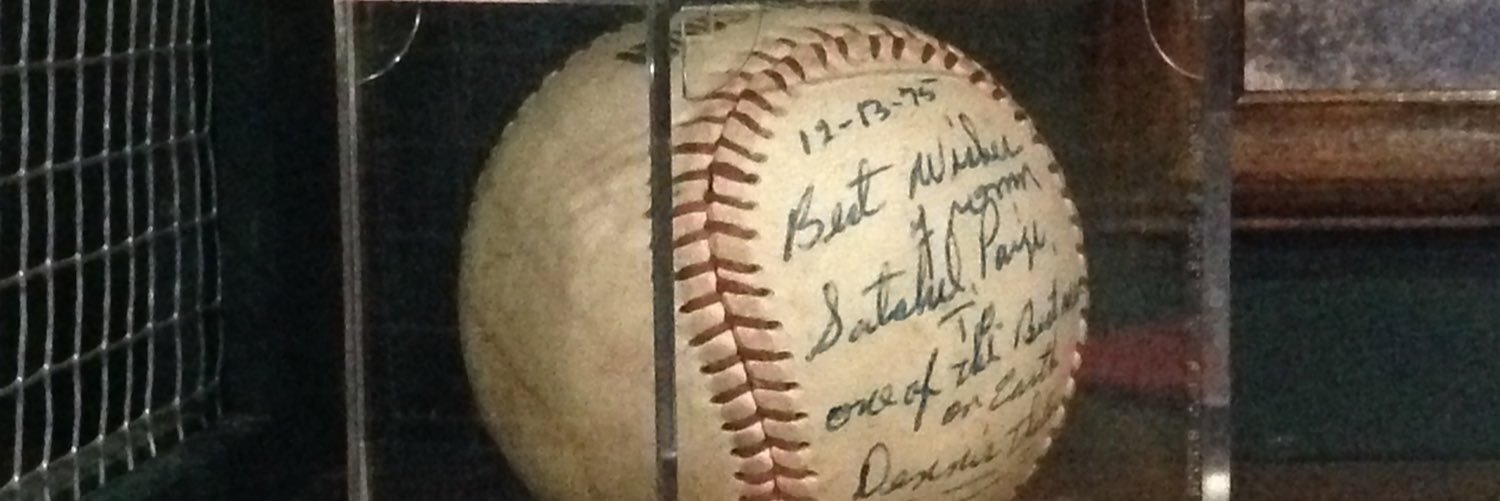 12-13-75
Best Wishes
from
Satchel Paige,
To
one of the Best
on Earth
Dennis